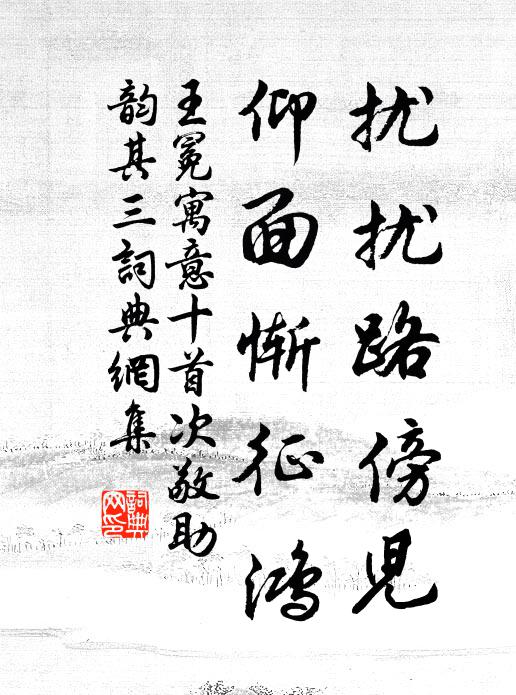 扰扰路傍児
仰面惭征鸿
王冕寓意十首次敬助
韵其三詞典網集
詞典網印